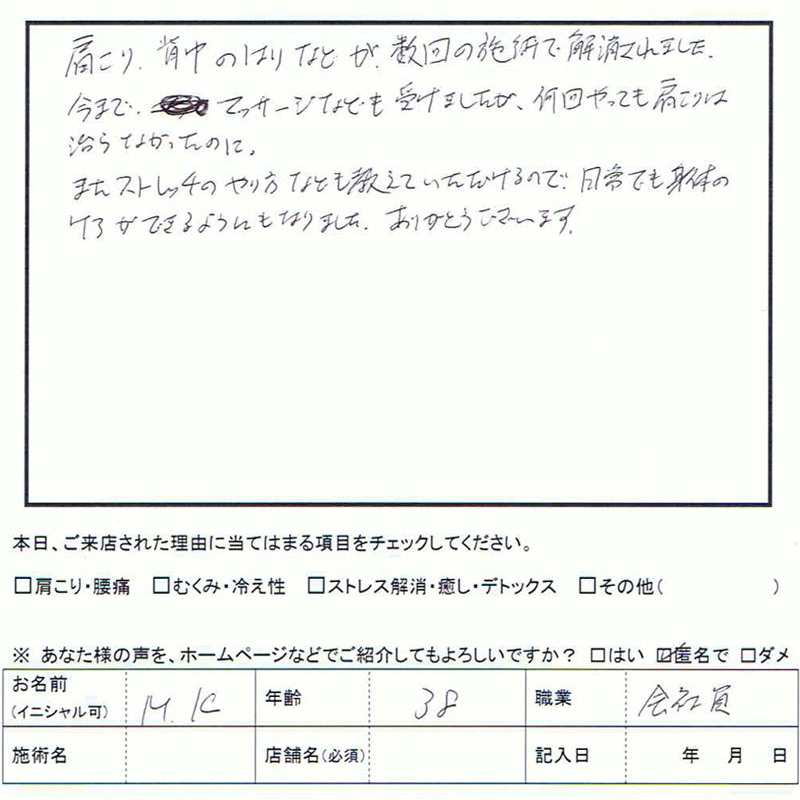 肩こり、背中のはりなどが、数回の施術で解消されました。
今まで、マッサージなども受けましたが、何回やっても肩こりは
治らなかったのに。
またストレッチのやり方なども教えていただけるので、日常でも身体の
ケアができるようにもなりました。ありがとうございます。
本日、ご来店された理由に当てはまる項目をチェックしてください。
□肩こり・腰痛 □むくみ・冷え性 □ストレス解消・癒し・デトックス □その他( )
※ あなた様の声を、ホームページなどでご紹介してもよろしいですか? □はい ☑匿名で □ダメ
お名前 (イニシャル可) M.K 年齢 38 職業 会社員
施術名 店舗名(必須) 記入日 年 月 日